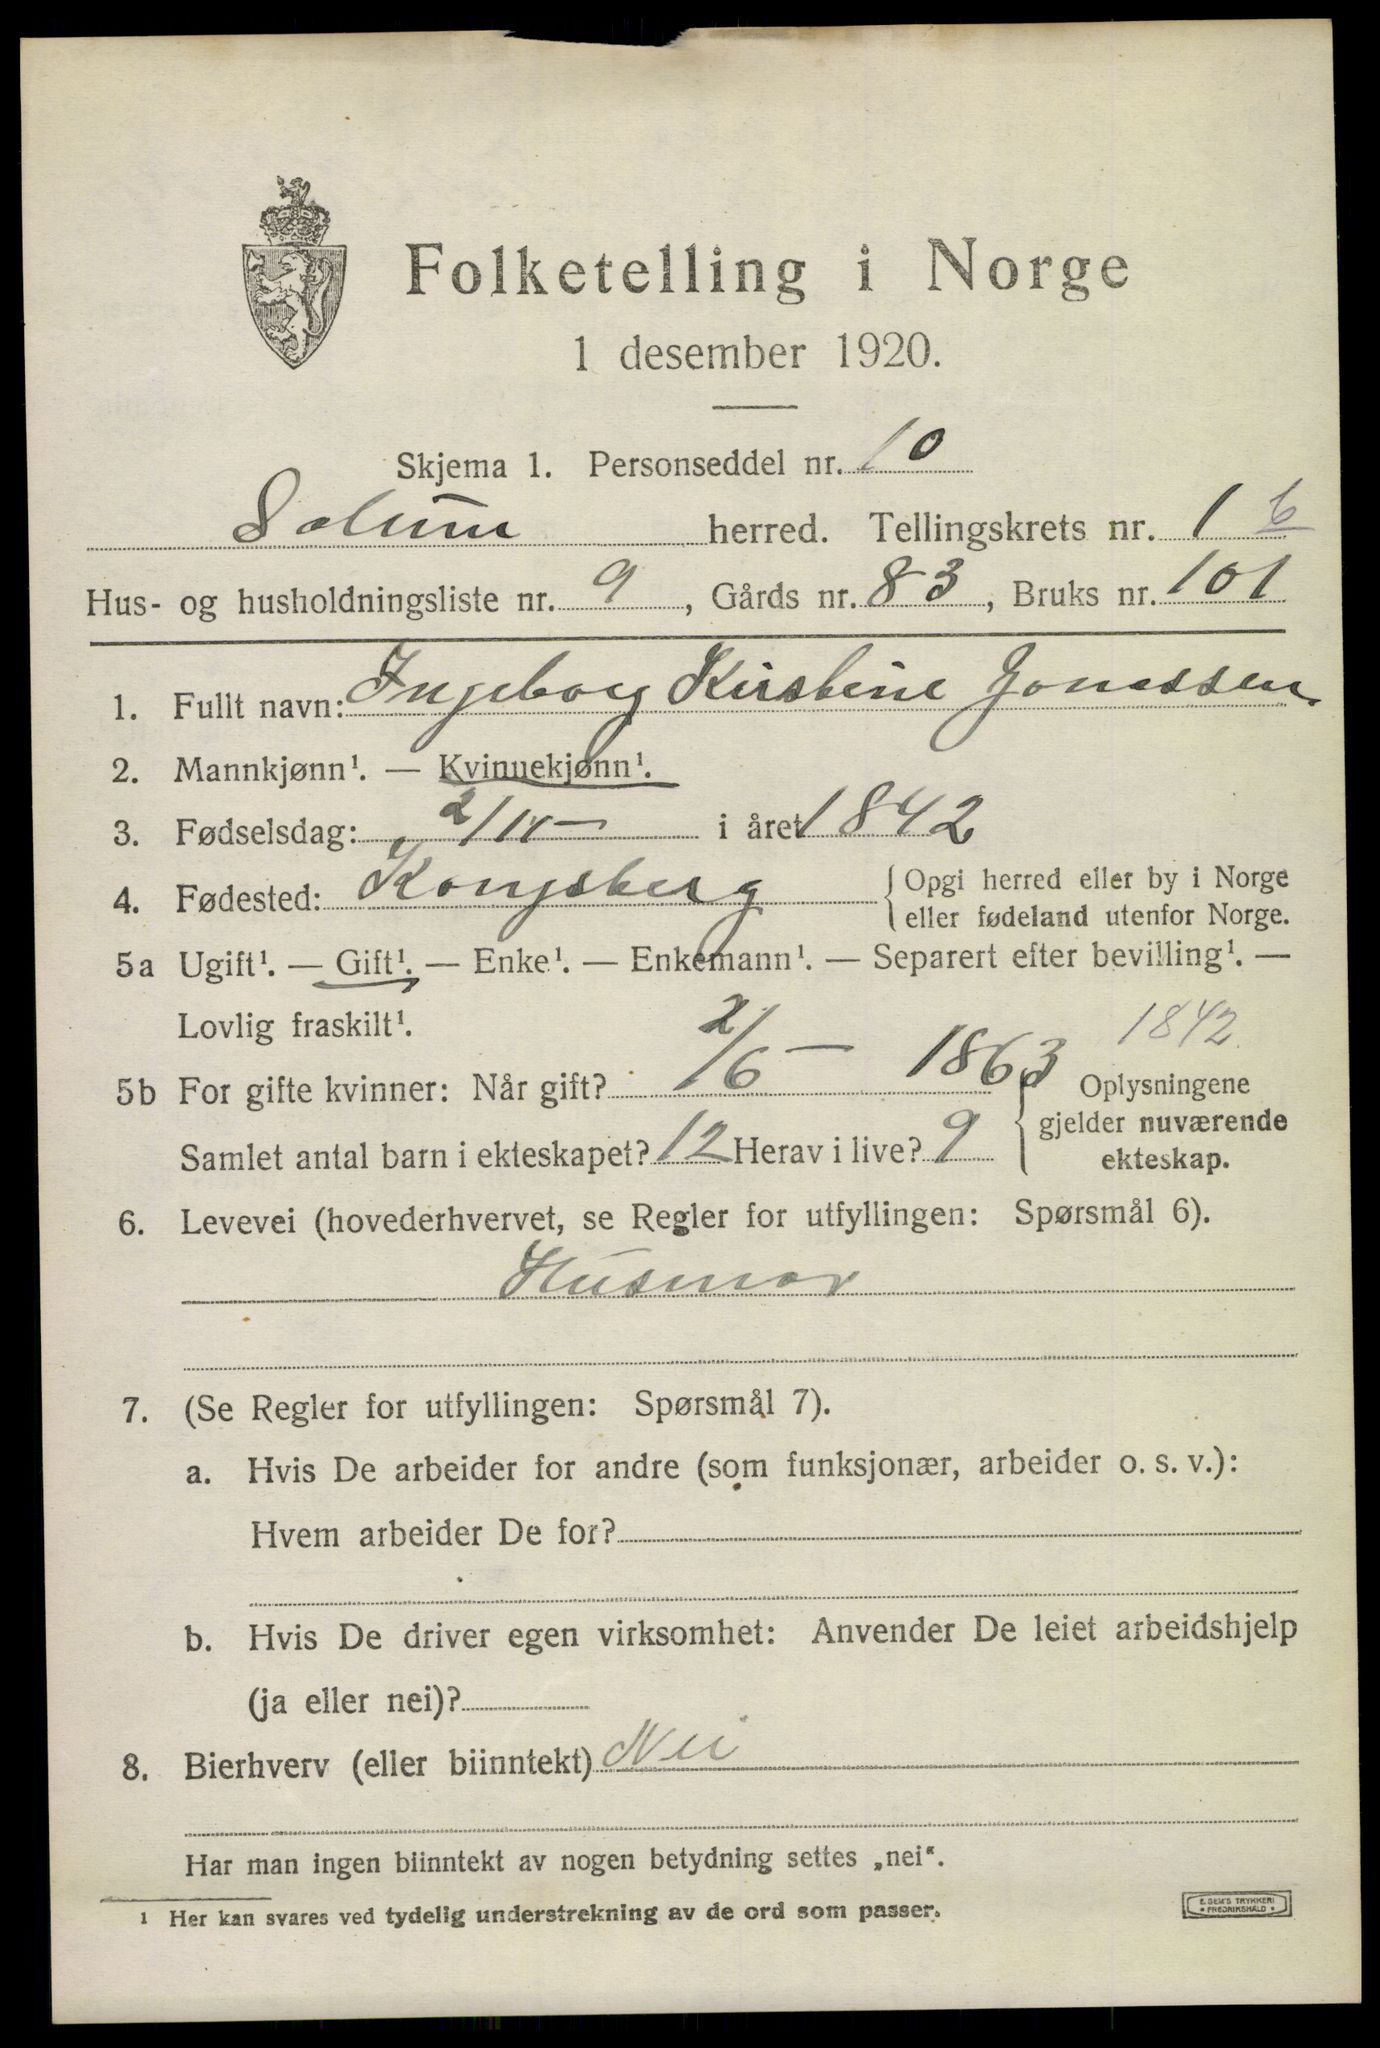 Folketelling i Norge
1 desember 1920.
Skjema 1. Personseddel nr. 10
Solum herred. Tellingskrets nr. 1 b
Hus- og husholdningsliste nr. 9, Gårds nr. 83, Bruks nr. 101
1. Fullt navn: Ingeborg Kirstine Jonassen.
2. Mannkjønn¹. — Kvinnekjønn¹.
3. Fødselsdag: 2/14 — i året 1842
4. Fødested: Kongsberg {Opgi herred eller by i Norge
eller fødeland utenfor Norge.
5a Ugift¹. — Gift¹. — Enke¹. — Enkemann¹. — Separert efter bevilling¹. —
Lovlig fraskilt¹. 1842
5b For gifte kvinner: Når gift? 2/6 — 1863 Oplysningene
gjelder nuværende
Samlet antal barn i ekteskapet? 12 Herav i live? 9 ekteskap.
6. Levevei (hovederhvervet, se Regler for utfyllingen: Spørsmål 6).
Husmor
7. (Se Regler for utfyllingen: Spørsmål 7).
a. Hvis De arbeider for andre (som funksjonær, arbeider o. s. v.):
Hvem arbeider De for?
b. Hvis De driver egen virksomhet: Anvender De leiet arbeidshjelp
(ja eller nei)?
8. Bierhverv (eller biinntekt) Nei
Har man ingen biinntekt av nogen betydning settes „nei“.
1 Her kan svares ved tydelig understrekning av de ord som passer.
E. SEM'S TRYKKERI
FREDRIKSHALD